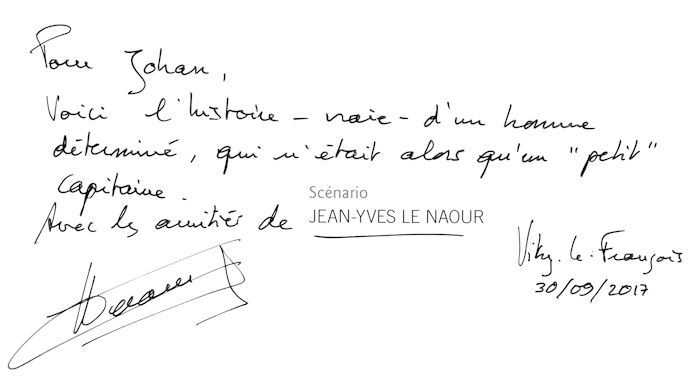 Pour Johan,
Voici l'histoire - vraie - d'un homme
déterminé, qui n'était alors qu'un "petit"
capitaine.
Scénario
Avec les amitiés de JEAN-YVES LE NAOUR
Vitry-le-François
30/09/2017